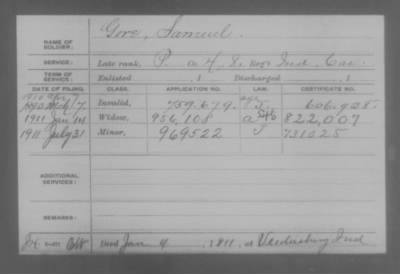 Gore, Samuel.
NAME OF SOLDIER:
SERVICE: Late rank, P a 4, 8, Regt Ind. Cav.
TERM OF SERVICE: Enlisted , 1 Discharged , 1
DATE OF FILING. CLASS. APPLICATION NO. LAW. CERTIFICATE NO.
7 Invalid, 759.679. 606.928.
1911 Jan 14 Widow, 956,108 822,007
1911 July 31 Minor, 969522 731025
ADDITIONAL SERVICES:
REMARKS:
Died Jan 9, 1911, at Veedersburg Ind